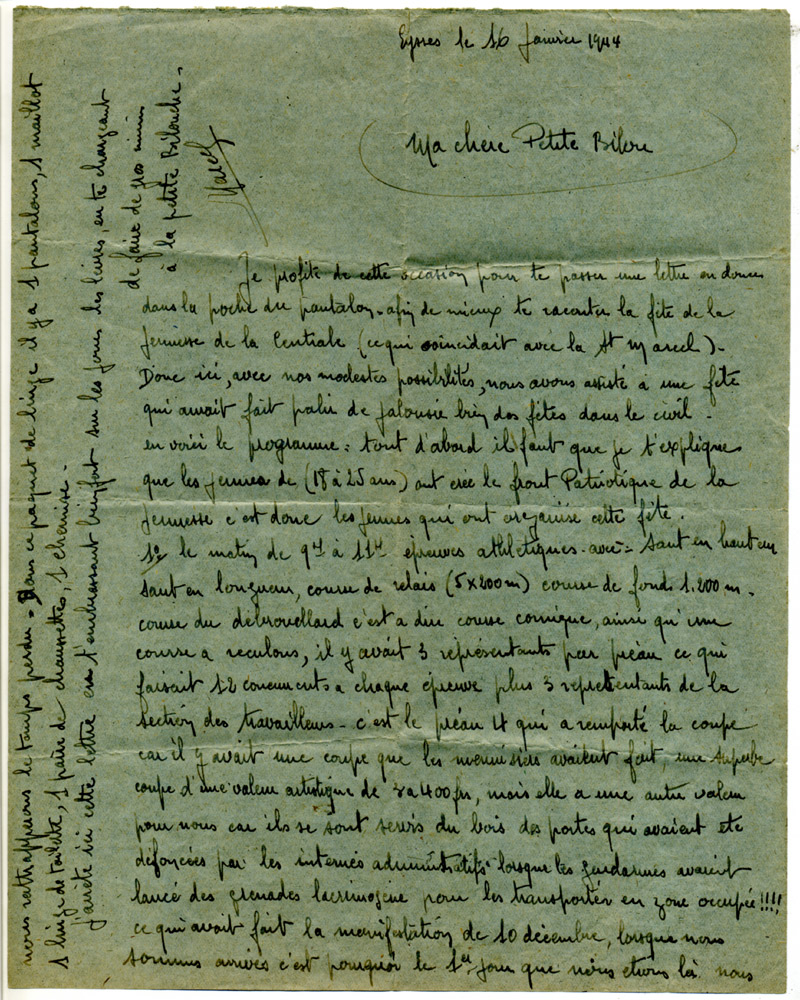 Eysses le 16 Janvier 1944
Ma chere Petite Bilou
Je profite de cette occasion pour te passer une lettre en douce
dans la poche du pantalon afin de mieux te raconter la fête de la
jeunesse de la Centrale (ce qui coincidait avec la St Marcel).
Donc ici, avec nos modestes possibilités, nous avons assisté à une fête
qui aurait fait palir de jalousie bien des fêtes dans le civil.
en voici le programme : tout d'abord il faut que je t'explique
que les jeunes de (18 à 25 ans) ont crée le front Patriotique de la
jeunesse c'est donc les jeunes qui ont organisé cette fête.
1º le matin de 9H à 11H épreuves athlétiques avec : Saut en hauteur
saut en longueur, course de relais (5x200m) course de fond 1.200m.
course du débrouillard c'est a dire course comique, ainsi qu'une
course a reculons, il y avait 3 représentants par préau ce qui
faisait 12 concurrents a chaque épreuve plus 3 représentants de la
section des travailleurs - c'est le préau 4 qui a remporté la coupe
car il y avait une coupe que les menuisiers avaient fait, une superbe
coupe d'une valeur artistique de 3 a 400 frs, mais elle a une autre valeur
pour nous car ils se sont servis du bois des portes qui avaient ete
défoncées par les internés administratifs lorsque les gendarmes avaient
lancé des grenades lacrimogène pour les transporter en zone occupée !!!!
ce qui avait fait la manifestation de 10 décembre, lorsque nous
sommes arrivés c'est pourquoi le 1er jour que nous etions là nous
nous rattrapperons le temps perdu = Dans ce paquet de linge il y a 1 pantalons, 1 maillot
1 linge de toilette, 1 paire de chaussettes, 1 chemise -
j'arrête ici cette lettre en t'embrassant bien fort sur les joues les lèvres, en te chargeant
de faire de gros mimis
à la petite Bilouche -
Marcel